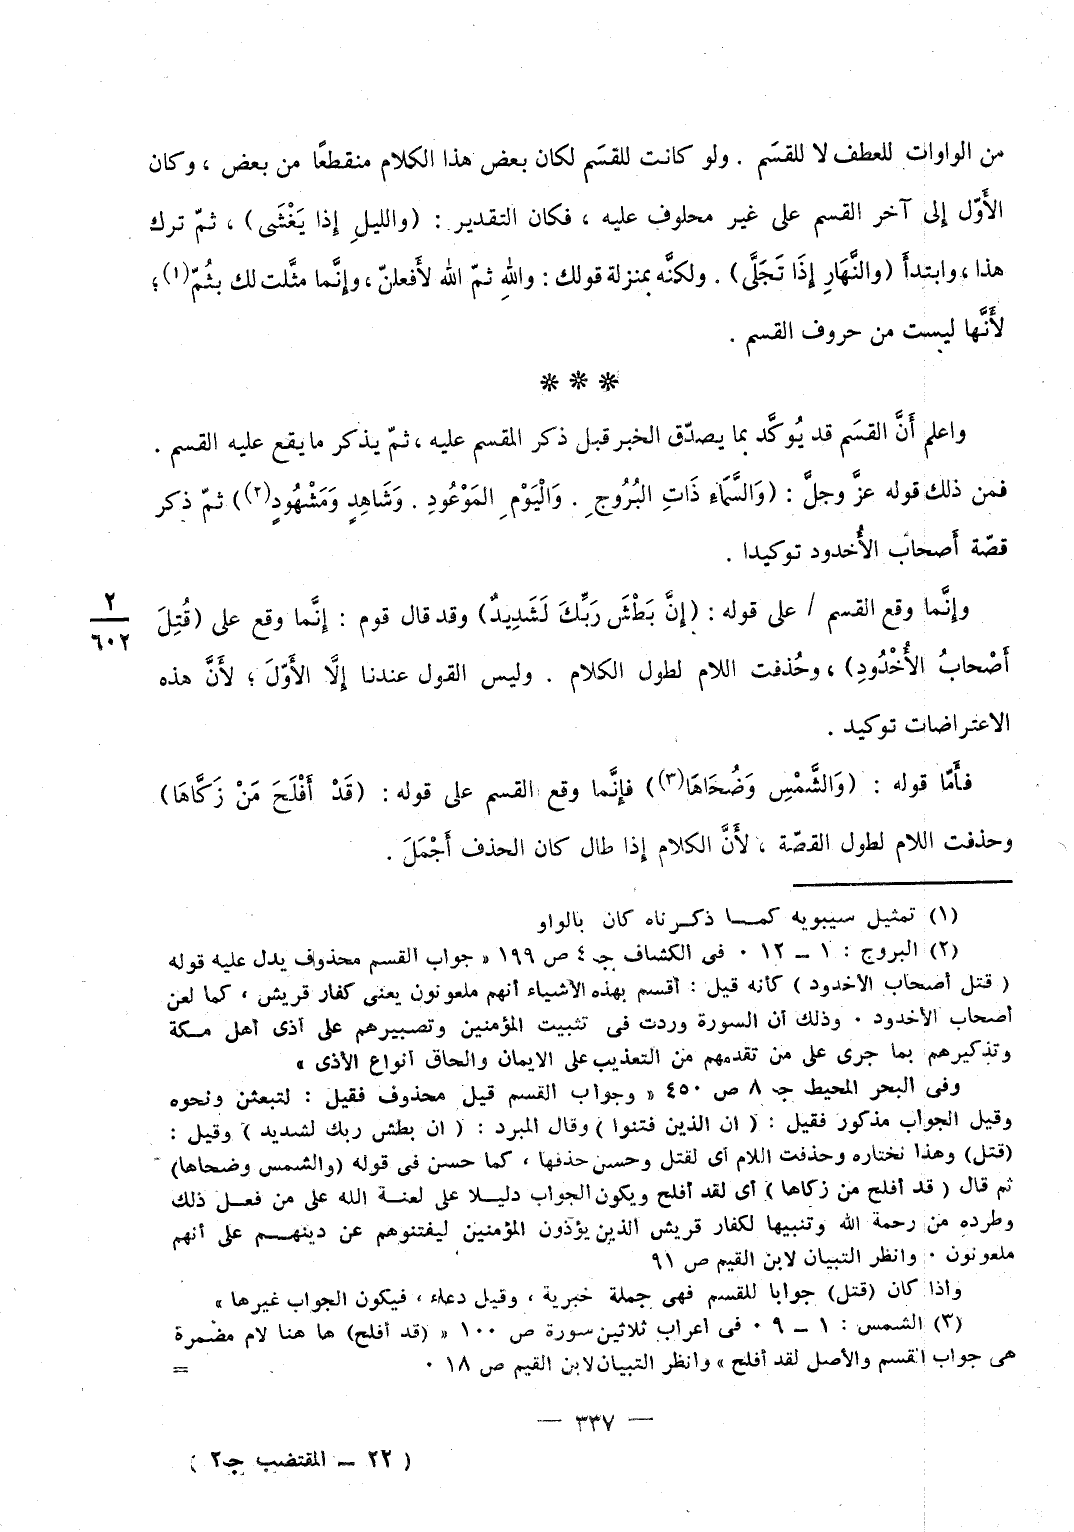 من الواوات للعطف لا للقسَم . ولو كانت للقسَم لكان بعض هذا الكلام منقطعًا من بعض ، وكان
الأَوّل إلى آخر القسم على غير محلوف عليه ، فكان التقدير : (والليلِ إِذا يَغْشَى) ، ثمّ ترك
هذا ، وابتدأَ (والنَّهارِ إِذَا تَجَلَّى) . ولكنَّه بمنزلة قولك : واللهِ ثمّ الله لأَفعلنّ ، وإنَّما مثَّلت لك بثُمّ(١) ؛
لأَنَّها ليست من حروف القسم .
※ ※ ※
واعلم أَنَّ القسَم قد يُوكَّد بما يصدّق الخبر قبل ذكر المقسم عليه ، ثمّ يذكر ما يقع عليه القسم .
فمن ذلك قوله عزَّ وجلَّ : (وَالسَّمَاءِ ذَاتِ البُرُوجِ . وَالْيَوْمِ المَوْعُودِ . وَشَاهِدٍ وَمَشْهُودٍ(٢)) ثمّ ذكر
قصّة أَصحاب الأُخدود توكيدا .
وإِنَّما وقع القسم / على قوله : (إِنَّ بَطْشَ رَبِّكَ لَشَدِيدٌ) وقد قال قوم : إِنَّما وقع على (قُتِلَ
٢
٦٠٢
أَصْحابُ الأُخْدُودِ) ، وحُذفت اللام لطول الكلام . وليس القول عندنا إِلَّا الأَوّلَ ؛ لأَنَّ هذه
الاعتراضات توكيد .
فأَمّا قوله : (وَالشَّمْسِ وَضُحَاهَا(٣)) فإِنَّما وقع القسم على قوله : (قَدْ أَفْلَحَ مَنْ زَكَّاهَا)
وحذفت اللام لطول القصّة ، لأَنَّ الكلام إِذا طال كان الحذف أَجْمَلَ .
(١) تمثيل سيبويه كما ذكرناه كان بالواو
(٢) البروج : ١ ــ ١٢ ٠ فى الكشاف جـ ٤ ص ١٩٩ « جواب القسم محذوف يدل عليه قوله
( قتل أصحاب الأخدود ) كأنه قيل : أقسم بهذه الأشياء أنهم ملعونون يعنى كفار قريش ، كما لعن
أصحاب الأخدود ٠ وذلك أن السورة وردت فى تثبيت المؤمنين وتصبيرهم على أذى أهل مكة
وتذكيرهم بما جرى على من تقدمهم من التعذيب على الايمان والحاق أنواع الأذى »
وفى البحر المحيط جـ ٨ ص ٤٥٠ « وجواب القسم قيل محذوف فقيل : لتبعثن ونحوه
وقيل الجواب مذكور فقيل : ( ان الذين فتنوا ) وقال المبرد : ( ان بطش ربك لشديد ) وقيل :
(قتل) وهذا نختاره وحذفت اللام أى لقتل وحسن حذفها ، كما حسن فى قوله (والشمس وضحاها)
ثم قال ( قد أفلح من زكاها ) أى لقد أفلح ويكون الجواب دليلا على لعنة الله على من فعل ذلك
وطرده من رحمة الله وتنبيها لكفار قريش الذين يؤذون المؤمنين ليفتنوهم عن دينهم على أنهم
ملعونون ٠ وانظر التبيان لابن القيم ص ٩١
واذا كان (قتل) جوابا للقسم فهى جملة خبرية ، وقيل دعاء ، فيكون الجواب غيرها »
(٣) الشمس : ١ ــ ٩ ٠ فى اعراب ثلاثين سورة ص ١٠٠ « (قد أفلح) ها هنا لام مضمرة
هى جواب القسم والأصل لقد أفلح » وانظر التبيان لابن القيم ص ١٨ ٠
=
— ٣٣٧ —
( ٢٢ ــ المقتضب جـ٢ )